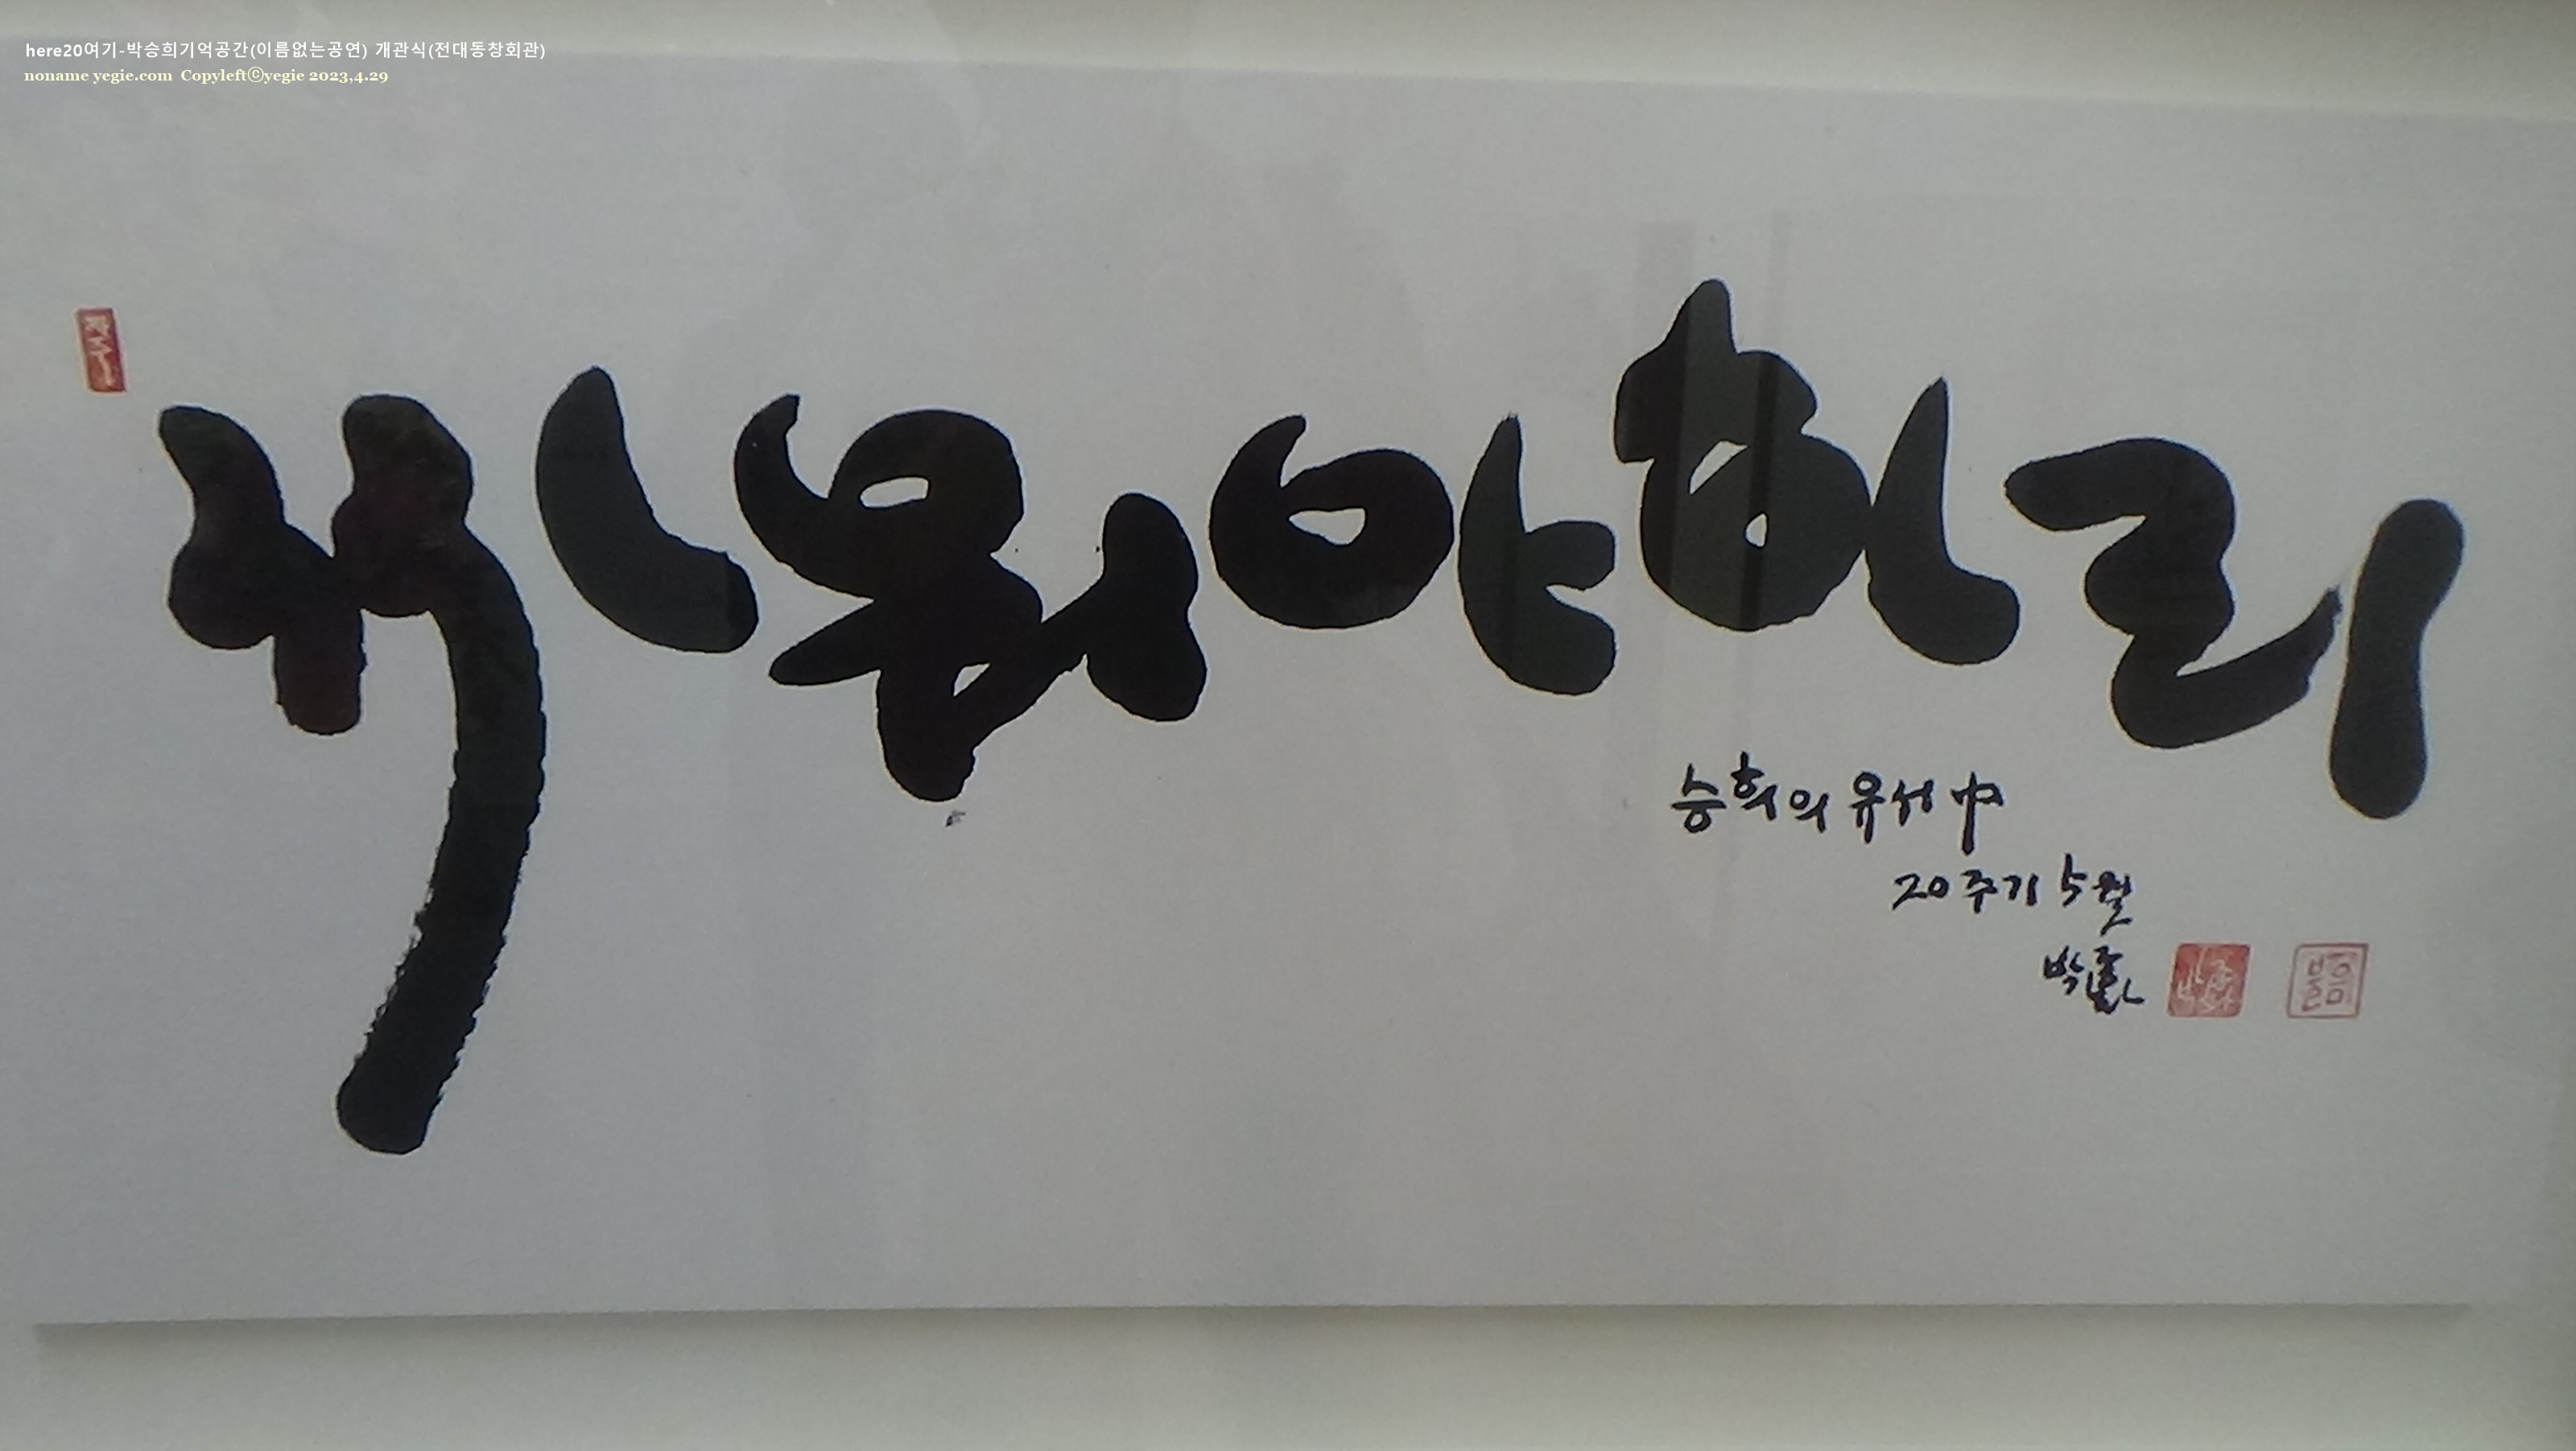 here20여기-박승희기억공간(이름없는공연) 개관식(전대동창회관)
noname yegie.com Copyleftⓒyegie 2023,4.29
싸워야하리
승희의 유서中
20주기 5월
박